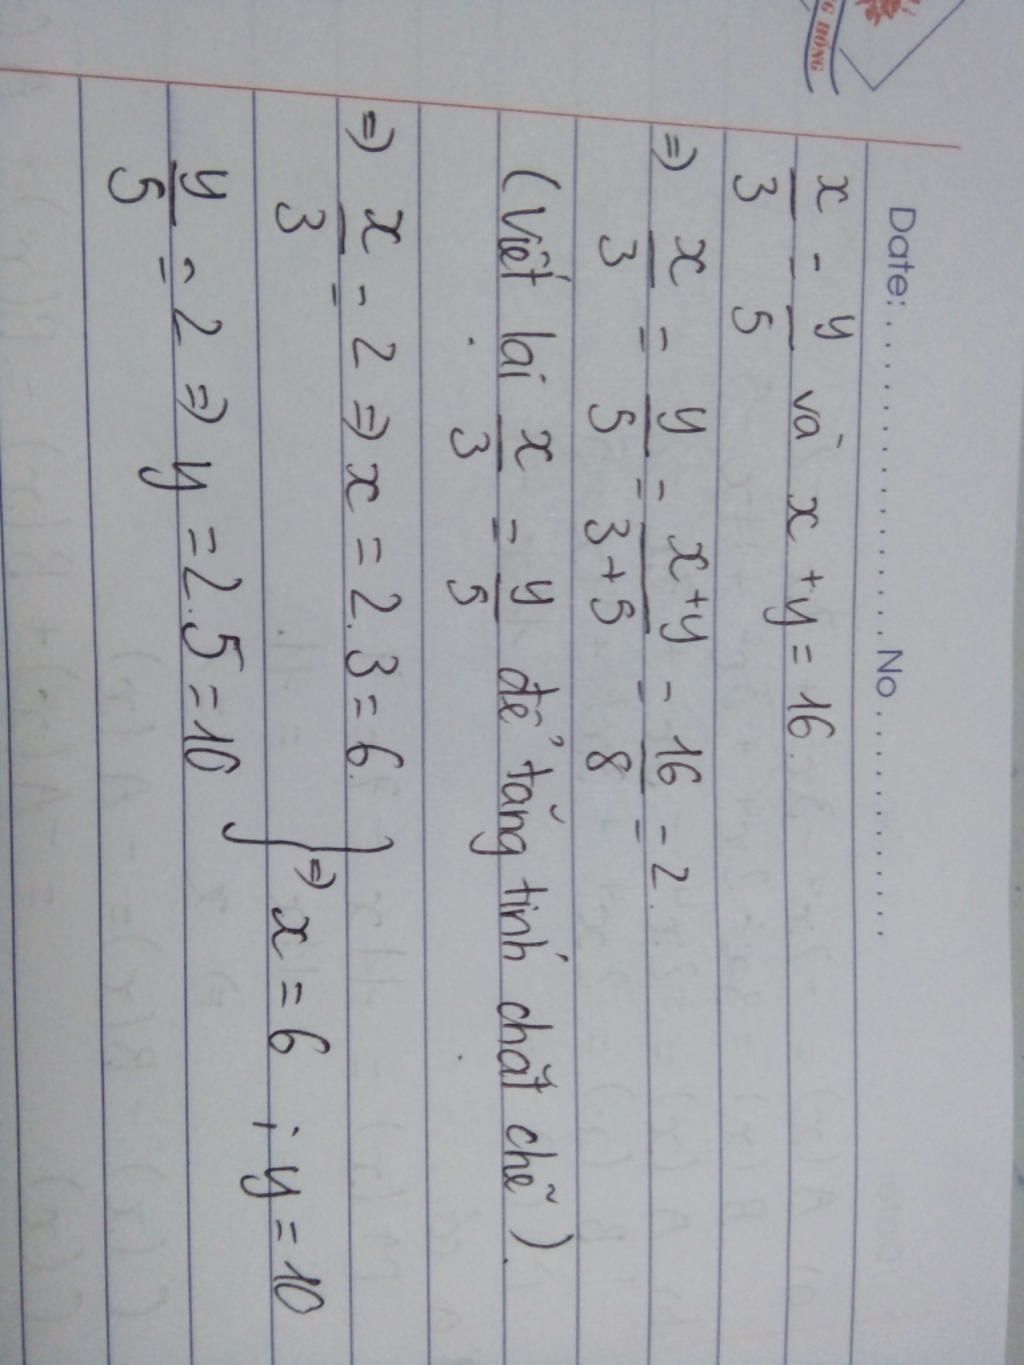 G HỒNG
Date: ........................ No ................
x/3 = y/5 và x + y = 16.
=> x/3 = y/5 = x+y/3+5 = 16/8 = 2.
(Viết lại x/3 = y/5 để tăng tính chặt chẽ).
=> x/3 = 2 => x = 2.3 = 6.
y/5 = 2 => y = 2.5 = 10
} => x = 6 ; y = 10